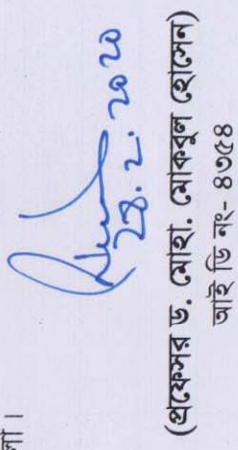 লা।
২৪.২.২০২০
(প্রফেসর ড. মোহা. মোকবুল হোসেন)
আই ডি নং- ৪৩৫৪